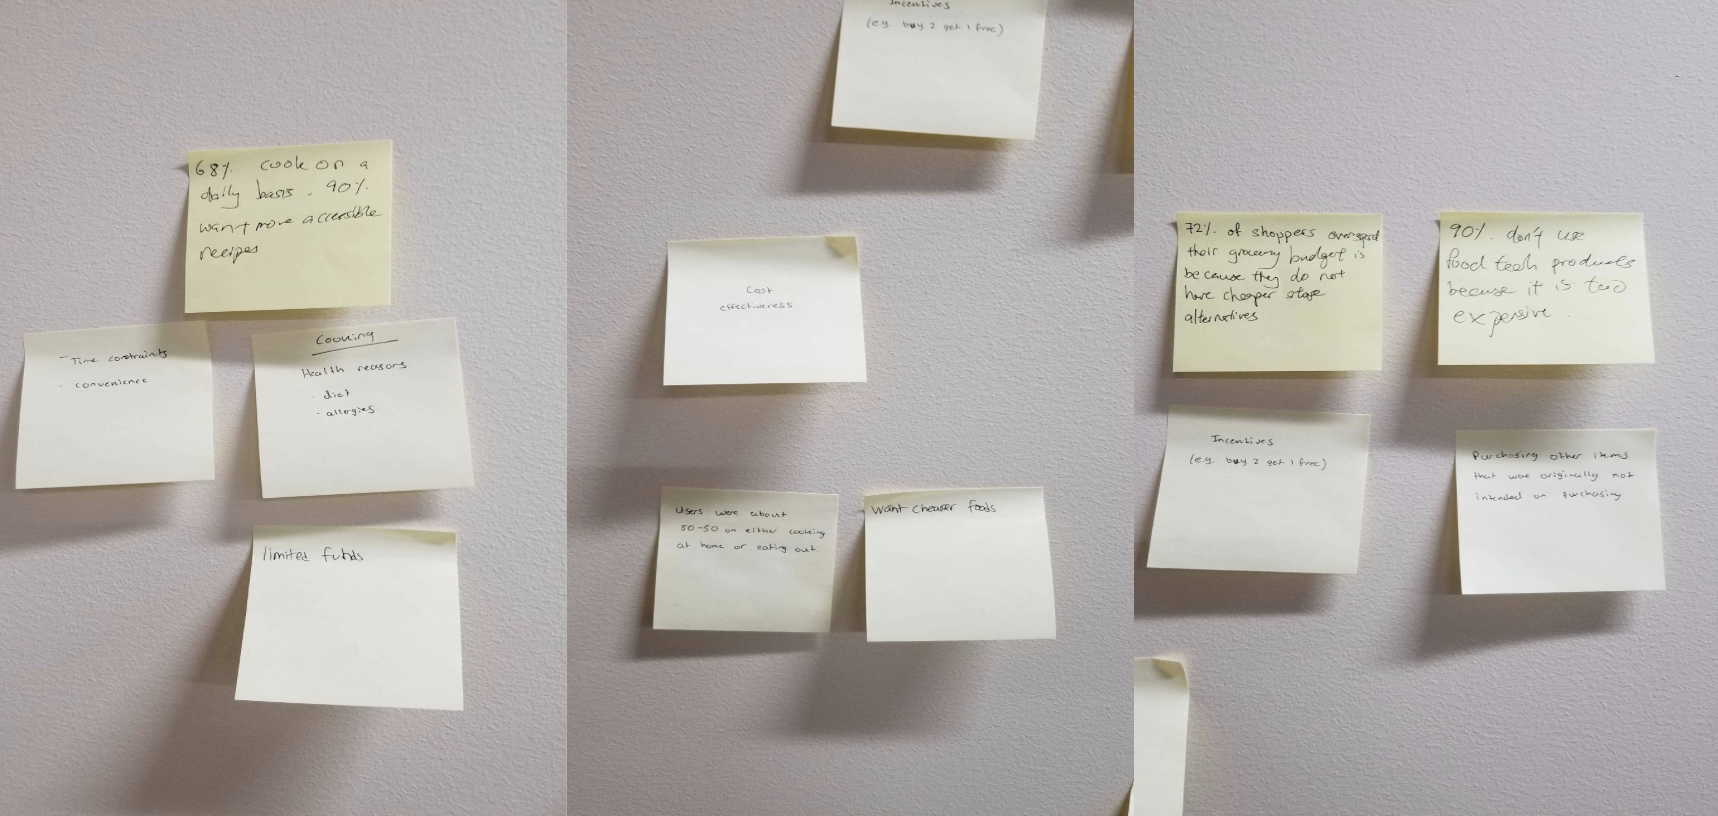 68% cook on a
daily basis. 90%
want more accessible
recipes
- Time constraints
- convenience
Cooking
Health reasons
- diet
- allergies
limited funds
Incentives
(e.g. buy 2 get 1 free)
Cost
effectiveness
Users were about
50-50 on either cooking
at home or eating out.
Want cheaper foods
72% of shoppers overspend
their grocery budget is
because they do not
have cheaper store
alternatives.
90% don't use
food tech products
because it is too
expensive.
Incentives
(e.g. buy 2 get 1 free)
Purchasing other items
that were originally not
intended on purchasing